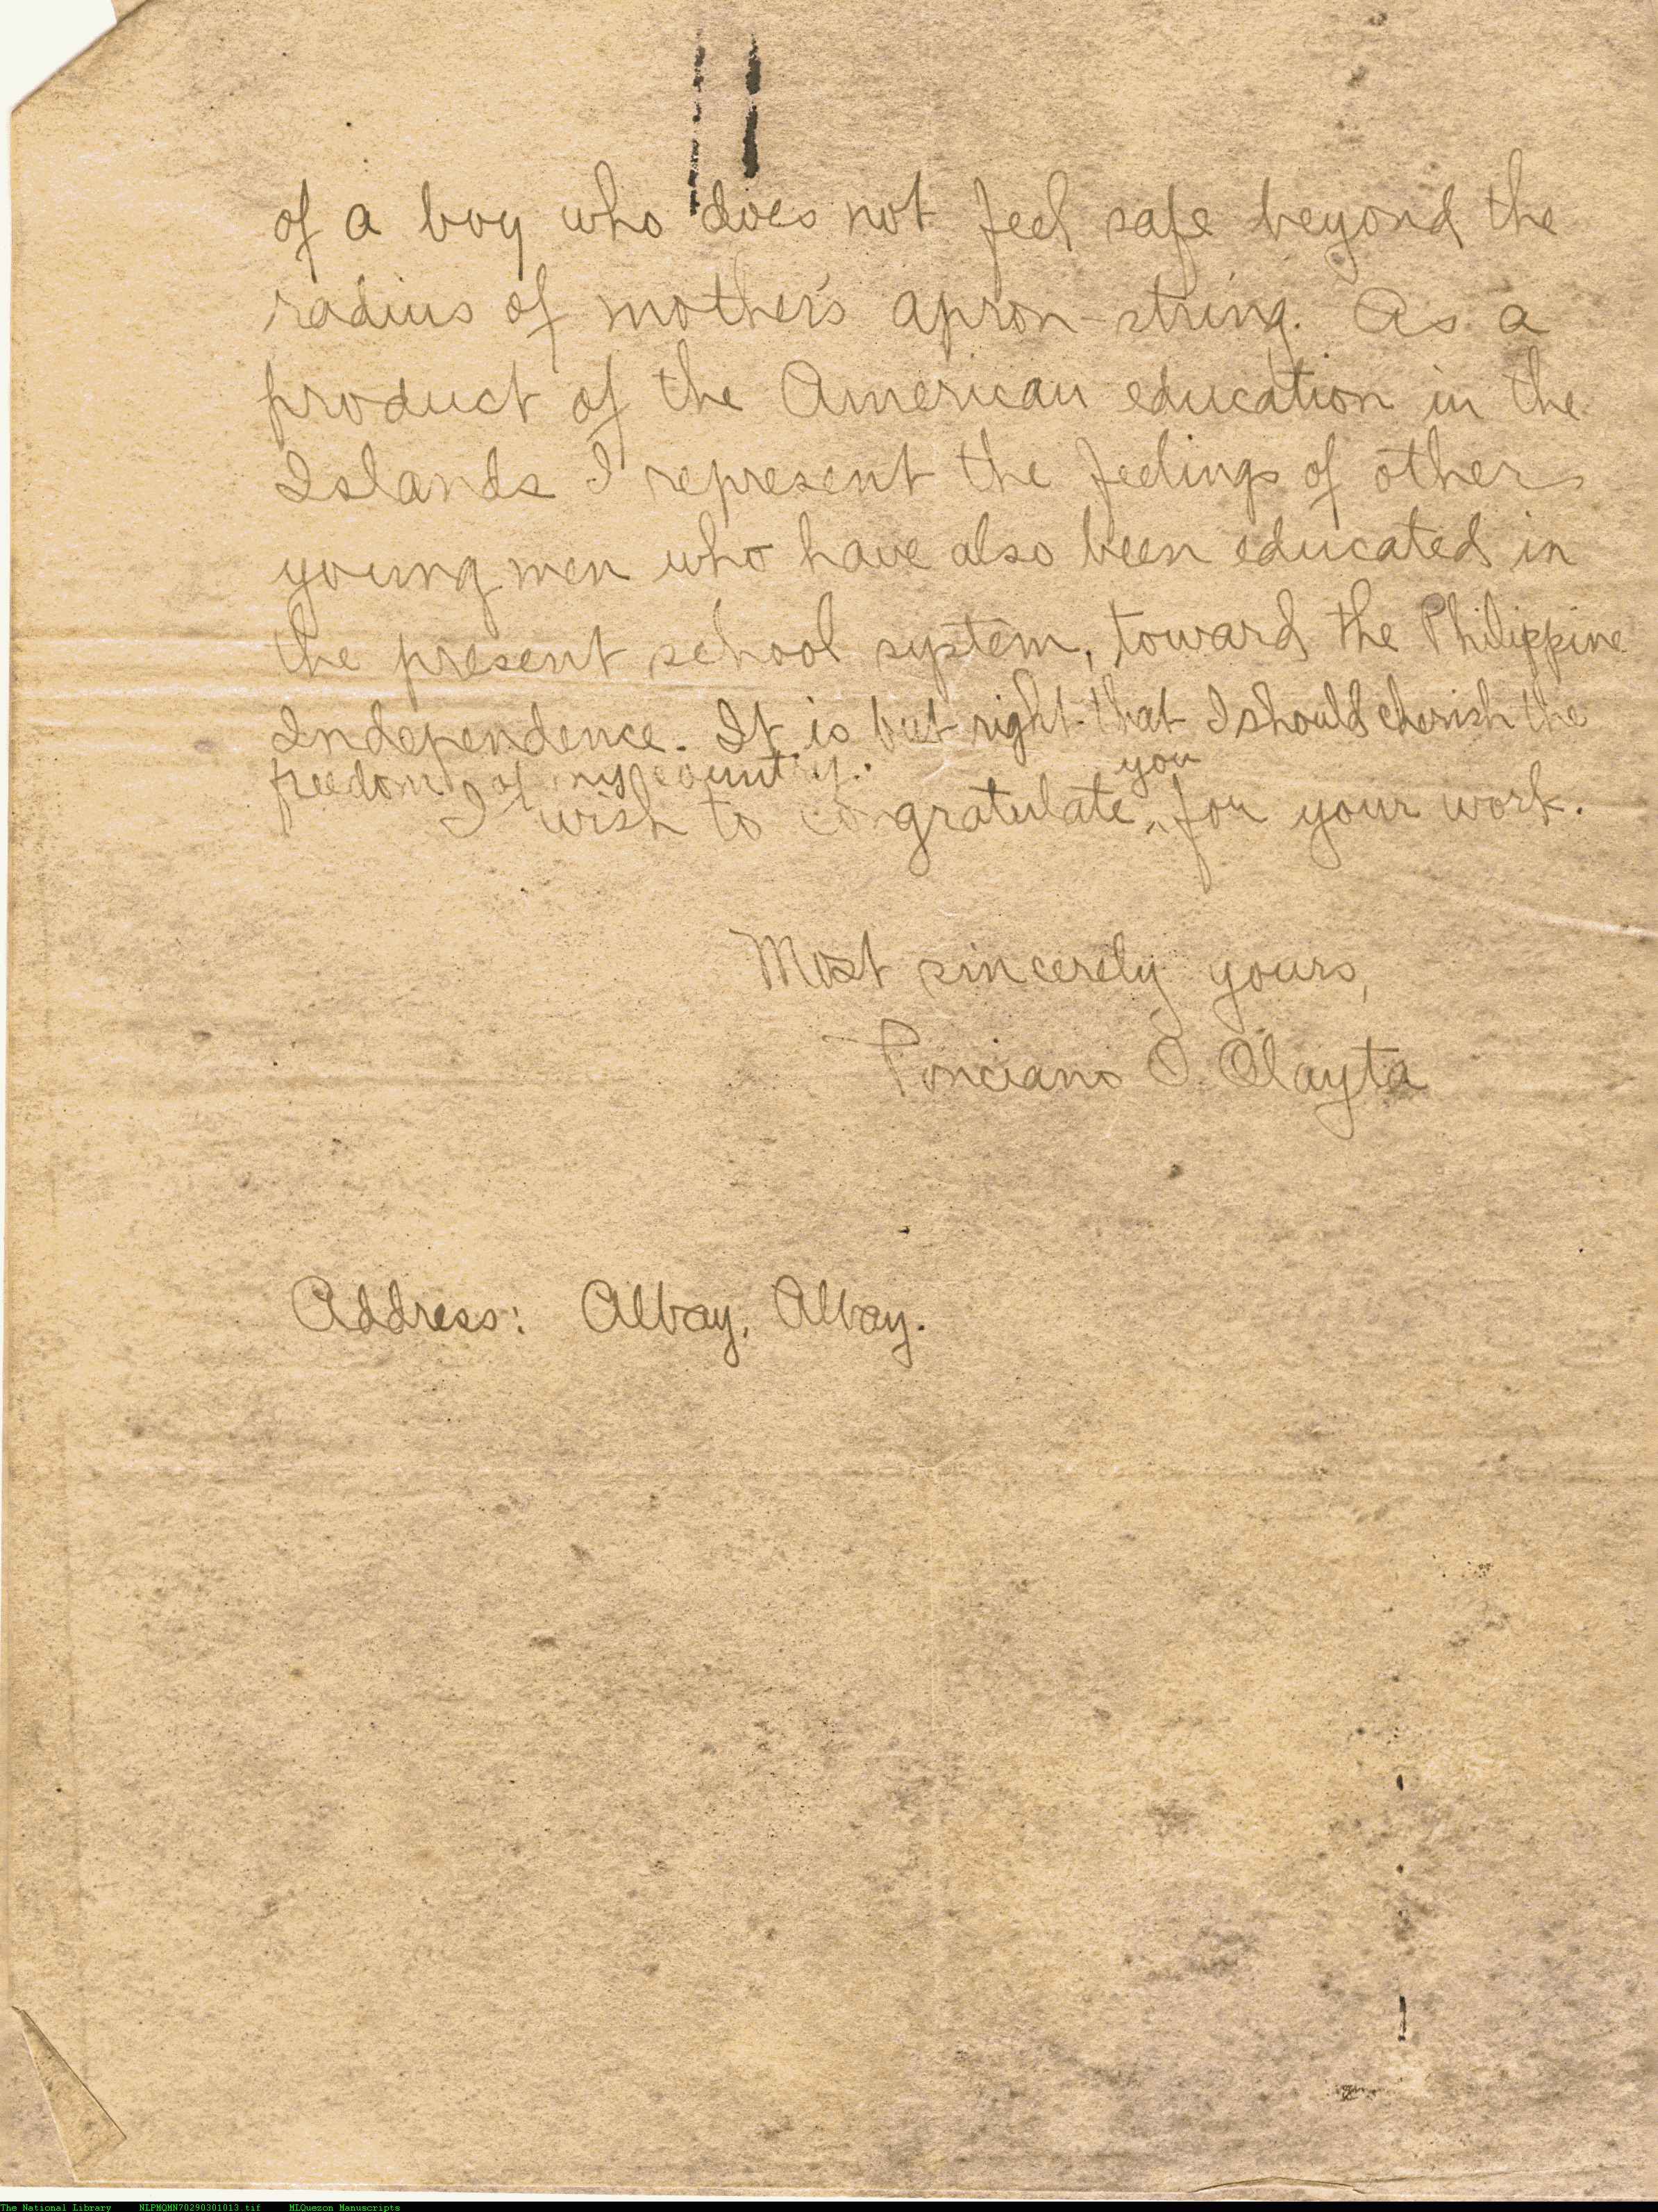 of a boy who does not feel safe beyond the
radius of mother's apron-string. As a
product of the American education in the
Islands I represent the feelings of other
young men who have also been educated in
the present school system, toward the Philippine
Independence. It is but right that I should cherish the
freedom of my country.
you
I wish to congratulate ^ for your work.
Most sincerely yours,
Ponciano O. Olayta
Address: Albay, Albay.
The National Library NLPMQMN70290301013.tif MLQuezon Manuscripts